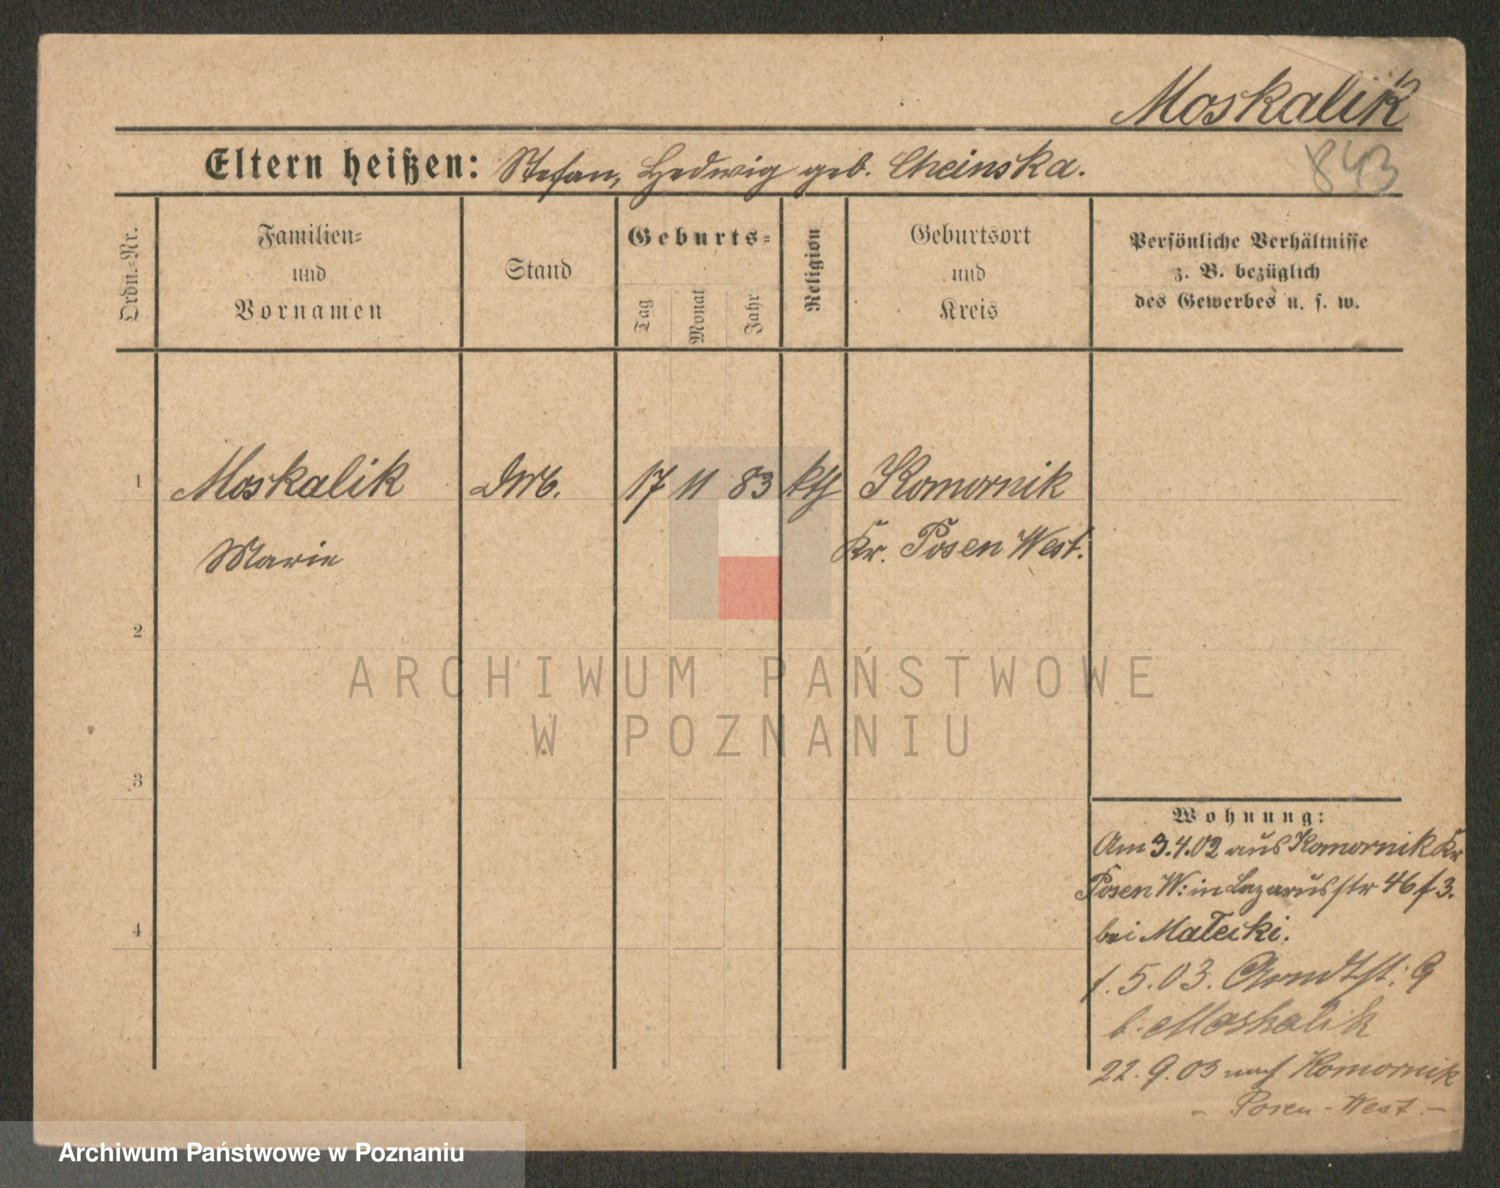 Moskalik
843
Eltern heißen: Stefan, Hedwig geb. Cheinska.
Ordn.-Nr.
Familien-
und
Vornamen
Stand
Geburts-
Tag
Monat
Jahr
Religion
Geburtsort
und
Kreis
Persönliche Verhältnisse
z. B. bezüglich
des Gewerbes u. s. w.
1 Moskalik 17 11 83 kth Komornik
Marie Kr. Posen West.
2
ARCHIWUM PAŃSTWOWE
W POZNANIU
3
Wohnung:
Am 3.4.02 aus Komornik Kr
Posen W: in Lazarusstr 46 f 3.
4
bei Małecki.
1.5.03. Arndtst: 9
b. Moskalik
22.9.03 nach Komornik
- Posen-West.-
Archiwum Państwowe w Poznaniu